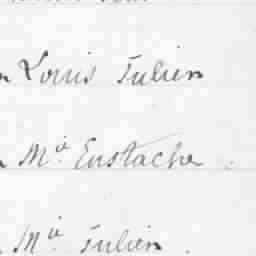 n Louis Julien
n Mie Eustache
Mie Julien